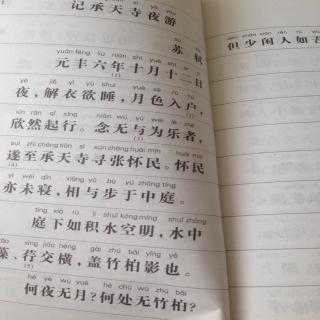 记承天寺夜游
sū shì
苏 轼
yuán fēng liù nián shí yuè shí èr rì
元丰六年十月十二日
(1)
yè jiě yī yù shuì yuè sè rù hù
夜，解衣欲睡，月色入户，
(2)
xīn rán qǐ xíng niàn wú yǔ wéi lè zhě
欣然起行。念无与为乐者，
(3)
suì zhì chéng tiān sì xún zhāng huái mín huái mín
遂至承天寺寻张怀民。怀民
yì wèi qǐn xiāng yǔ bù yú zhōng tíng
亦未寝，相与步于中庭。
(4)
tíng xià rú jī shuǐ kōng míng shuǐ zhōng
庭下如积水空明，水中
zǎo xìng jiāo héng gài zhú bǎi yǐng yě
藻、荇交横，盖竹柏影也。
(5)
hé yè wú yuè hé chù wú zhú bǎi
何夜无月？何处无竹柏？
dàn shǎo xián rén rú wú
但少闲人如吾